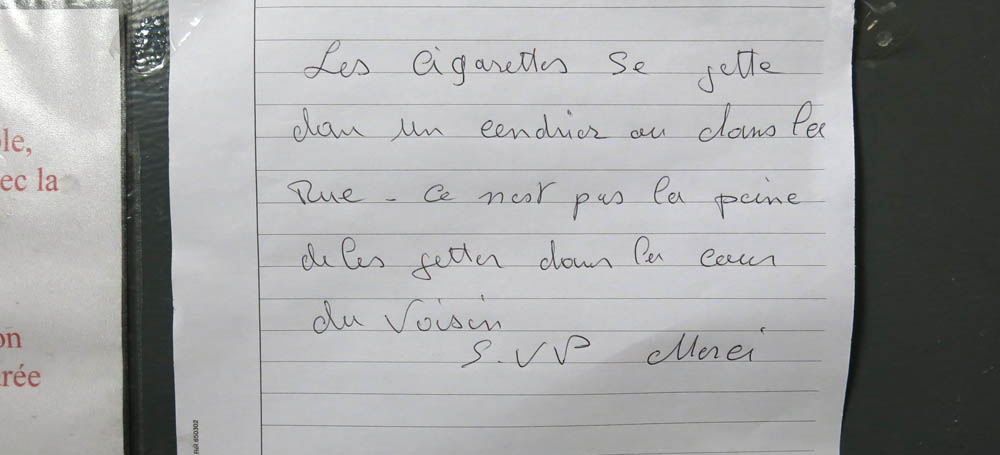 ole,
ec la
on
rée
Les Cigarettes se jette
dan un cendrier ou dans la
Rue - Ce nest pas la peine
de les jetter dans la cour
du Voisin
S.VP Merci
Réf: 650302